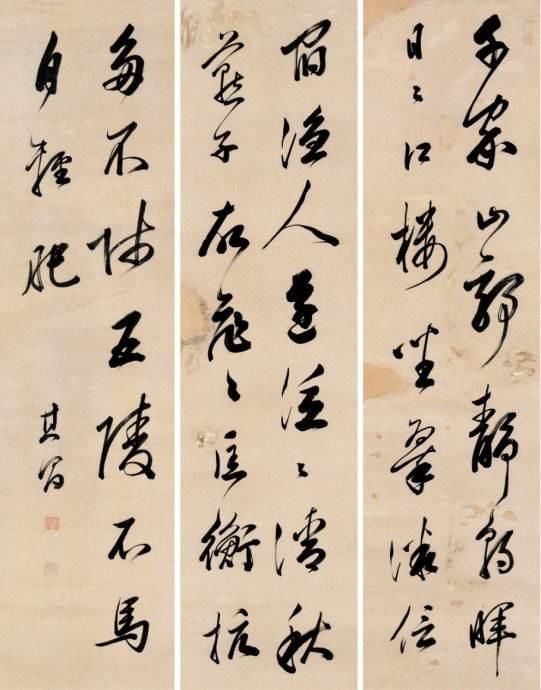 千家山郭靜朝暉
日〻江樓坐翠微信
宿漁人還泛〻清秋
燕子故飛〻匡衡抗
多不賤五陵衣馬
自輕肥
其昌